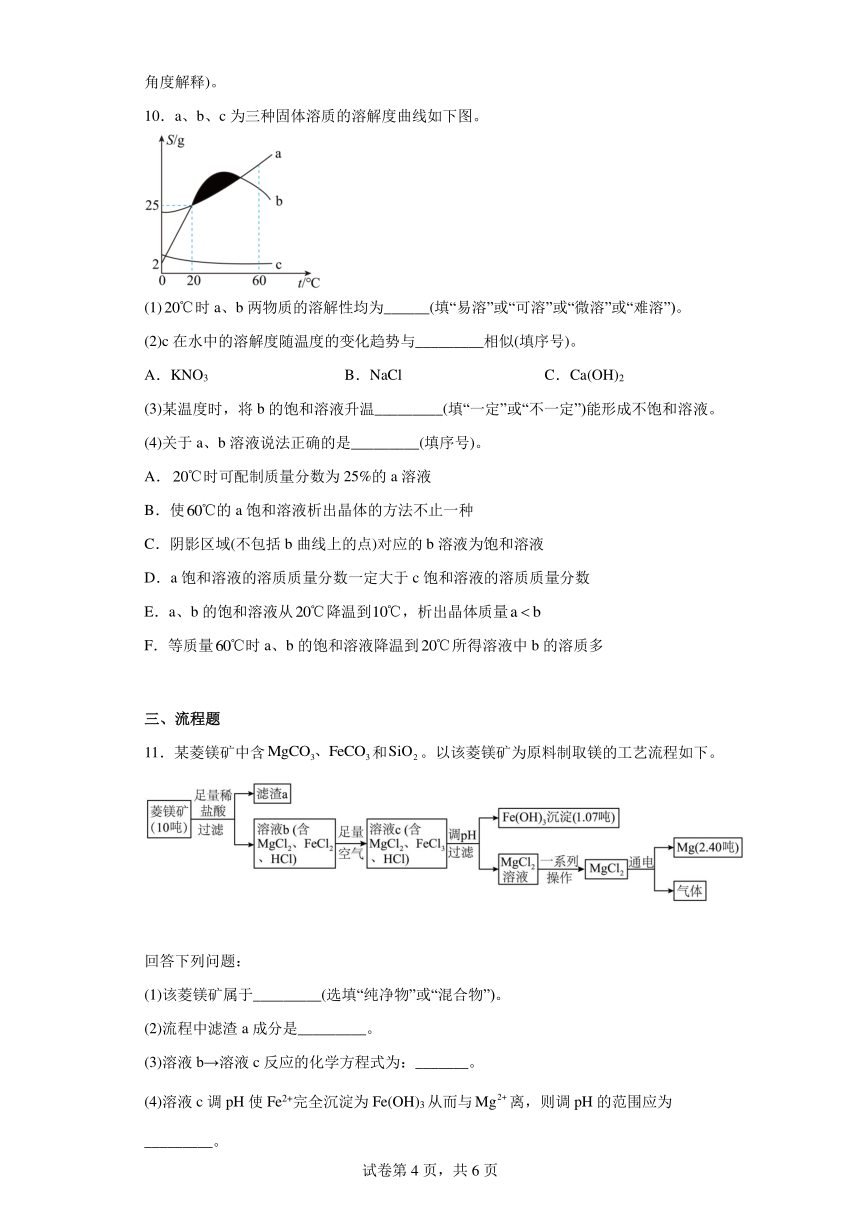 角度解释)。
10．a、b、c 为三种固体溶质的溶解度曲线如下图。
S/g
a
25
b
2
c
0 20 60 t/℃
(1) 20℃时 a、b 两物质的溶解性均为______(填“易溶”或“可溶”或“微溶”或“难溶”)。
(2)c 在水中的溶解度随温度的变化趋势与_________相似(填序号)。
A．KNO₃ B．NaCl C．Ca(OH)₂
(3)某温度时，将 b 的饱和溶液升温_________(填“一定”或“不一定”)能形成不饱和溶液。
(4)关于 a、b 溶液说法正确的是_________(填序号)。
A． 20℃时可配制质量分数为 25%的 a 溶液
B．使 60℃的 a 饱和溶液析出晶体的方法不止一种
C．阴影区域(不包括 b 曲线上的点)对应的 b 溶液为饱和溶液
D．a 饱和溶液的溶质质量分数一定大于 c 饱和溶液的溶质质量分数
E．a、b 的饱和溶液从 20℃降温到10℃，析出晶体质量 a < b
F．等质量 60℃时 a、b 的饱和溶液降温到 20℃所得溶液中 b 的溶质多
三、流程题
11．某菱镁矿中含 MgCO₃、FeCO₃ 和 SiO₂ 。以该菱镁矿为原料制取镁的工艺流程如下。
菱镁矿
(10吨)
足量稀
盐酸
过滤
滤渣a
溶液b (含
MgCl₂、FeCl₂
、HCl)
足量
空气
溶液c (含
MgCl₂、FeCl₃
、HCl)
调pH
过滤
Fe(OH)₃沉淀(1.07吨)
MgCl₂
溶液
一系列
操作
MgCl₂
通电
Mg(2.40吨)
气体
回答下列问题：
(1)该菱镁矿属于_________(选填“纯净物”或“混合物”)。
(2)流程中滤渣 a 成分是_________。
(3)溶液 b→溶液 c 反应的化学方程式为：_______。
(4)溶液 c 调 pH 使 Fe²⁺完全沉淀为 Fe(OH)₃ 从而与 Mg²⁺ 离，则调 pH 的范围应为
_________。
试卷第 4 页，共 6 页